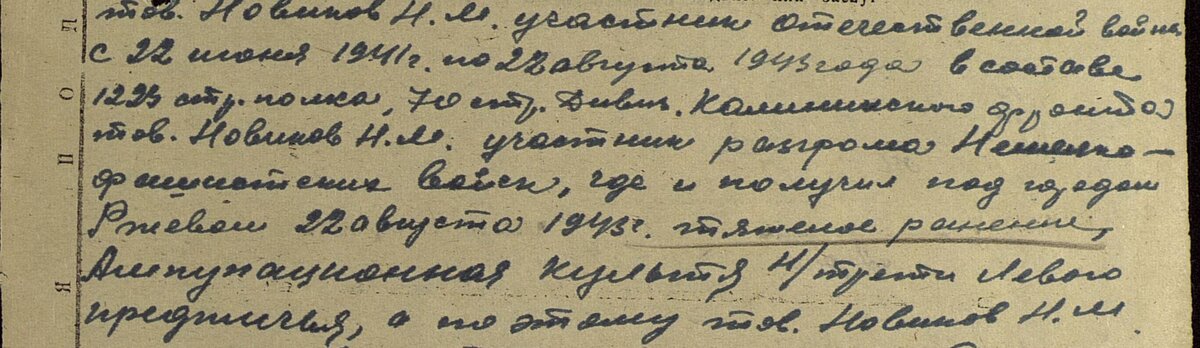 тов. Новиков Н.М. участник отечественной войны
с 22 июня 1941г. по 22 августа 1943 года в составе
1223 стр. полка, 70 стр. Дивиз. Калининского фронта
тов. Новиков Н.М. участник разгрома Немецко-
фашистских войск, где и получил под городом
Ржевом 22 августа 1943г. тяжелое ранение,
Ампутационная культя н/трети левого
предплечья, а по этому тов. Новиков Н.М.
П
О
П
Я